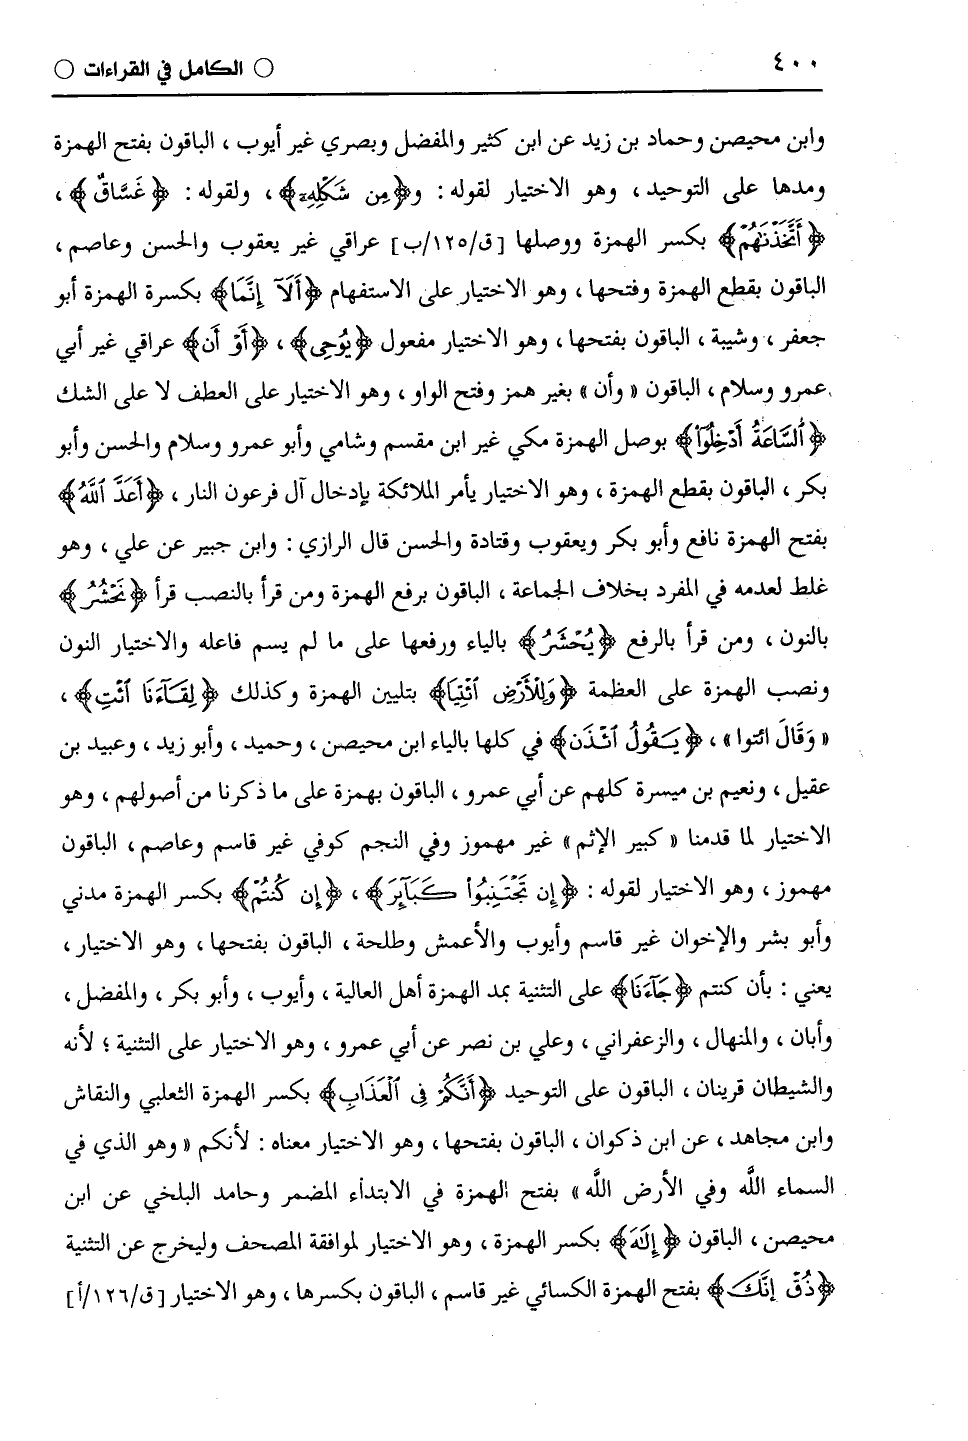 ٤٠٠
○ الكامل في القراءات ○
وابن محيصن وحماد بن زيد عن ابن كثير والمفضل وبصري غير أيوب ، الباقون بفتح الهمزة
ومدها على التوحيد ، وهو الاختيار لقوله : و﴿مِن شَكْلِهِۦٓ﴾ ، ولقوله : ﴿غَسَّاقٌ﴾ ،
﴿أَتَّخَذْنَٰهُمْ﴾ بكسر الهمزة ووصلها [ق/١٢٥/ب] عراقي غير يعقوب والحسن وعاصم ،
الباقون بقطع الهمزة وفتحها ، وهو الاختيار على الاستفهام ﴿أَلَآ إِنَّمَا﴾ بكسرة الهمزة أبو
جعفر ، وشيبة ، الباقون بفتحها ، وهو الاختيار مفعول ﴿يُوحِى﴾ ، ﴿أَوْ أَن﴾ عراقي غير أبي
عمرو وسلام ، الباقون « وأن » بغير همز وفتح الواو ، وهو الاختيار على العطف لا على الشك
﴿ٱلسَّاعَةُ أَدْخِلُوٓا۟﴾ بوصل الهمزة مكي غير ابن مقسم وشامي وأبو عمرو وسلام والحسن وأبو
بكر ، الباقون بقطع الهمزة ، وهو الاختيار يأمر الملائكة بإدخال آل فرعون النار ، ﴿أَعَدَّ ٱللَّهُ﴾
بفتح الهمزة نافع وأبو بكر ويعقوب وقتادة والحسن قال الرازي : وابن جبير عن علي ، وهو
غلط لعدمه في المفرد بخلاف الجماعة ، الباقون برفع الهمزة ومن قرأ بالنصب قرأ ﴿نَحْشُرُ﴾
بالنون ، ومن قرأ بالرفع ﴿يُحْشَرُ﴾ بالياء ورفعها على ما لم يسم فاعله والاختيار النون
ونصب الهمزة على العظمة ﴿وَلِلْأَرْضِ ٱئْتِيَا﴾ بتليين الهمزة وكذلك ﴿لِقَآءَنَا ٱئْتِ﴾ ،
« وَقَالَ ائتوا » ، ﴿يَقُولُ ٱئْذَن﴾ في كلها بالياء ابن محيصن ، وحميد ، وأبو زيد ، وعبيد بن
عقيل ، ونعيم بن ميسرة كلهم عن أبي عمرو ، الباقون بهمزة على ما ذكرنا من أصولهم ، وهو
الاختيار لما قدمنا « كبير الإثم » غير مهموز وفي النجم كوفي غير قاسم وعاصم ، الباقون
مهموز ، وهو الاختيار لقوله : ﴿إِن تَجْتَنِبُوا۟ كَبَآئِرَ﴾ ، ﴿إِن كُنتُمْ﴾ بكسر الهمزة مدني
وأبو بشر والإخوان غير قاسم وأيوب والأعمش وطلحة ، الباقون بفتحها ، وهو الاختيار ،
يعني : بأن كنتم ﴿جَآءَنَا﴾ على التثنية بمد الهمزة أهل العالية ، وأيوب ، وأبو بكر ، والمفضل ،
وأبان ، والمنهال ، والزعفراني ، وعلي بن نصر عن أبي عمرو ، وهو الاختيار على التثنية ؛ لأنه
والشيطان قرينان ، الباقون على التوحيد ﴿أَنَّكُمْ فِى ٱلْعَذَابِ﴾ بكسر الهمزة الثعلبي والنقاش
وابن مجاهد ، عن ابن ذكوان ، الباقون بفتحها ، وهو الاختيار معناه : لأنكم « وهو الذي في
السماء اللَّه وفي الأرض اللَّه » بفتح الهمزة في الابتداء المضمر وحامد البلخي عن ابن
محيصن ، الباقون ﴿إِلَٰهَ﴾ بكسر الهمزة ، وهو الاختيار لموافقة المصحف وليخرج عن التثنية
﴿ذُقْ إِنَّكَ﴾ بفتح الهمزة الكسائي غير قاسم ، الباقون بكسرها ، وهو الاختيار [ق/١٢٦/أ]